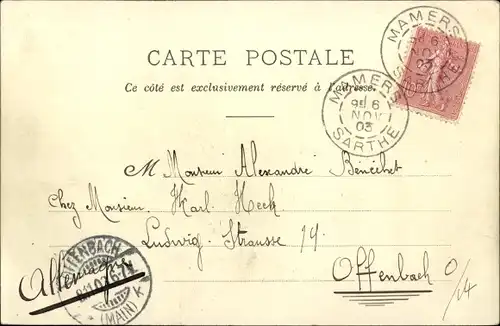 MAMERS
9E 6
NOV
03
SARTHE
MAMERS
6
NOV
03
SARTHE
CARTE POSTALE
Ce côté est exclusivement réservé à l'adresse.
M Monsieur Alexandre
Chez Monsieur Karl Heck
Ludwig-Strausse 14
Offenbach O/14
Allemagne
OFFENBACH
(MAIN) K